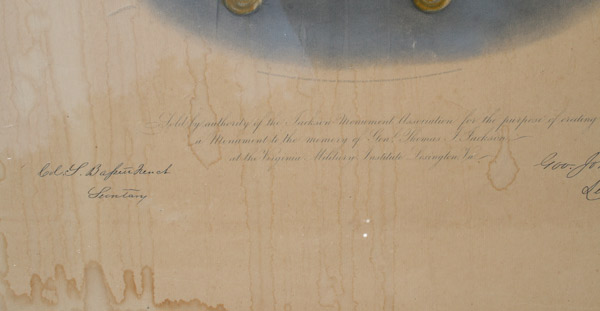 Sold by authority of the Jackson Monument Association for the purpose of erecting
a Monument to the memory of Genl. Thomas J. Jackson
at the Virginia Military Institute Lexington Va.
Col. S. Bassett French
Secretary
Gov. Jo